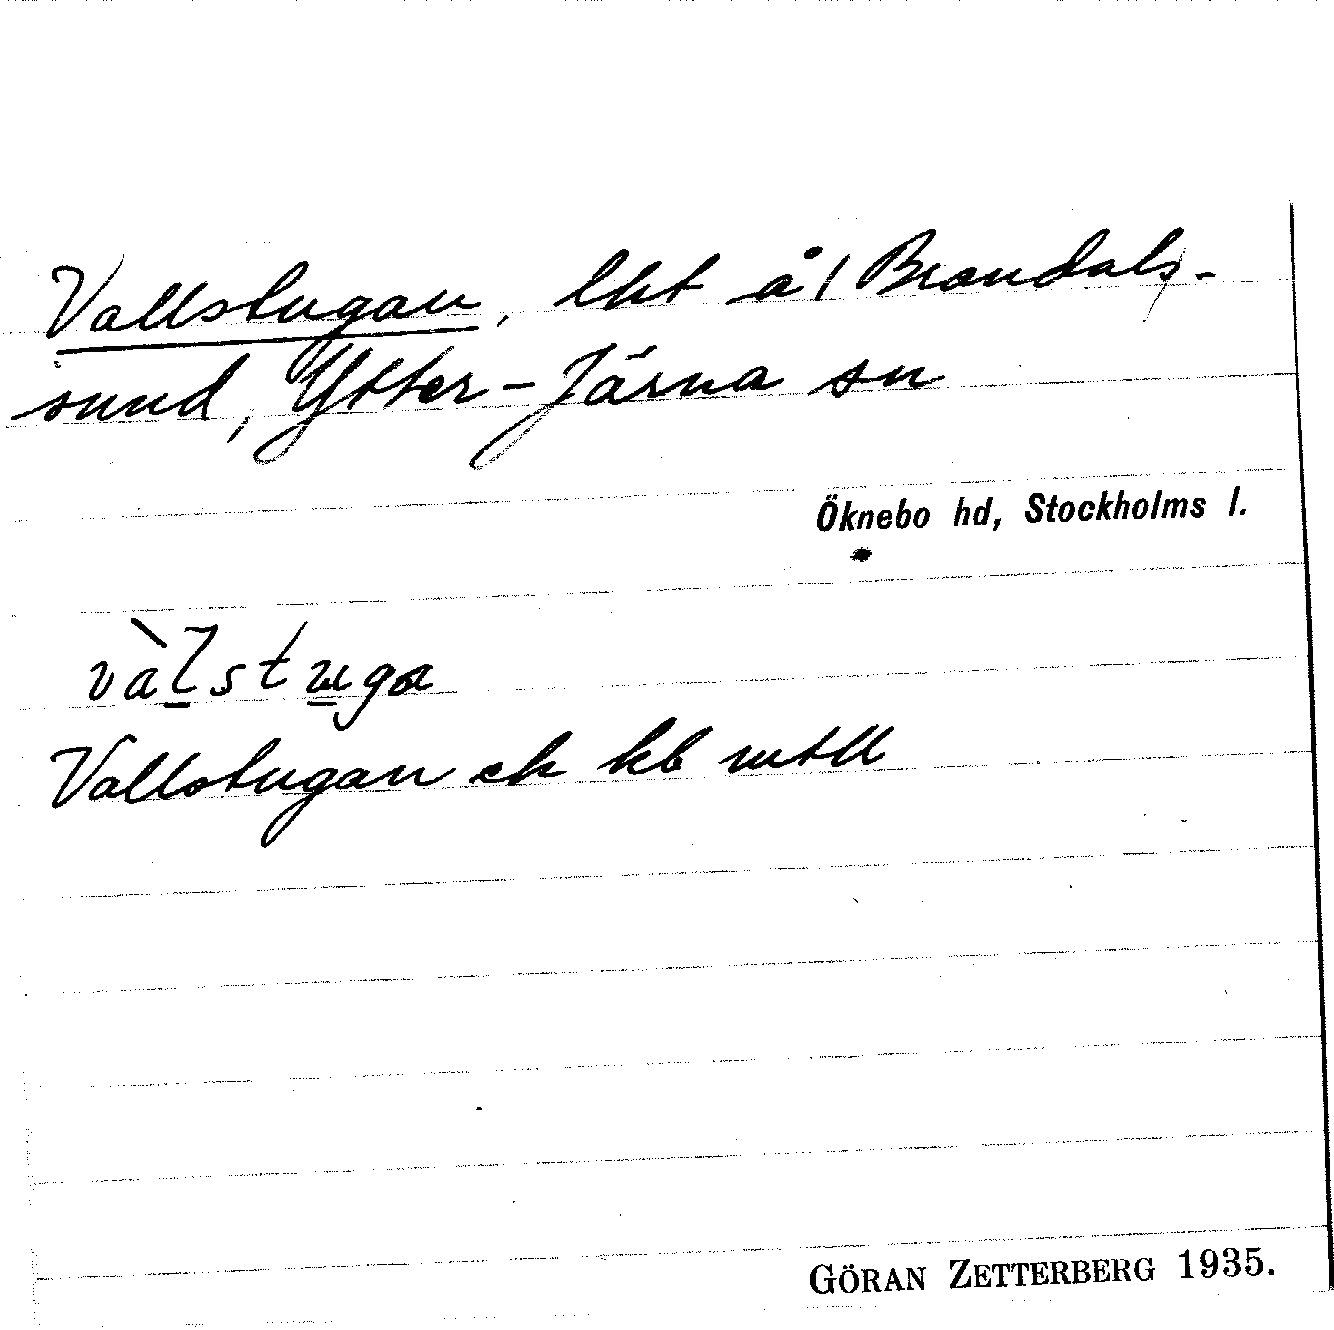 Vallstugan, lht å 1 Brandals-
sund, Ytter-Järna sn
Öknebo hd, Stockholms l.
vàlstuga
Vallstugan ek kb mtll
GÖRAN ZETTERBERG 1935.